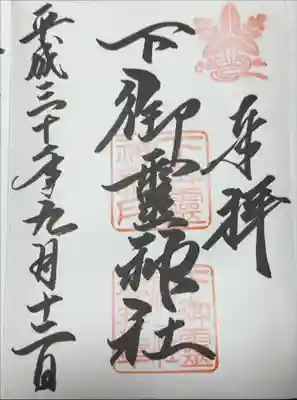 奉拝
下御霊神社
平成三十年九月十二日